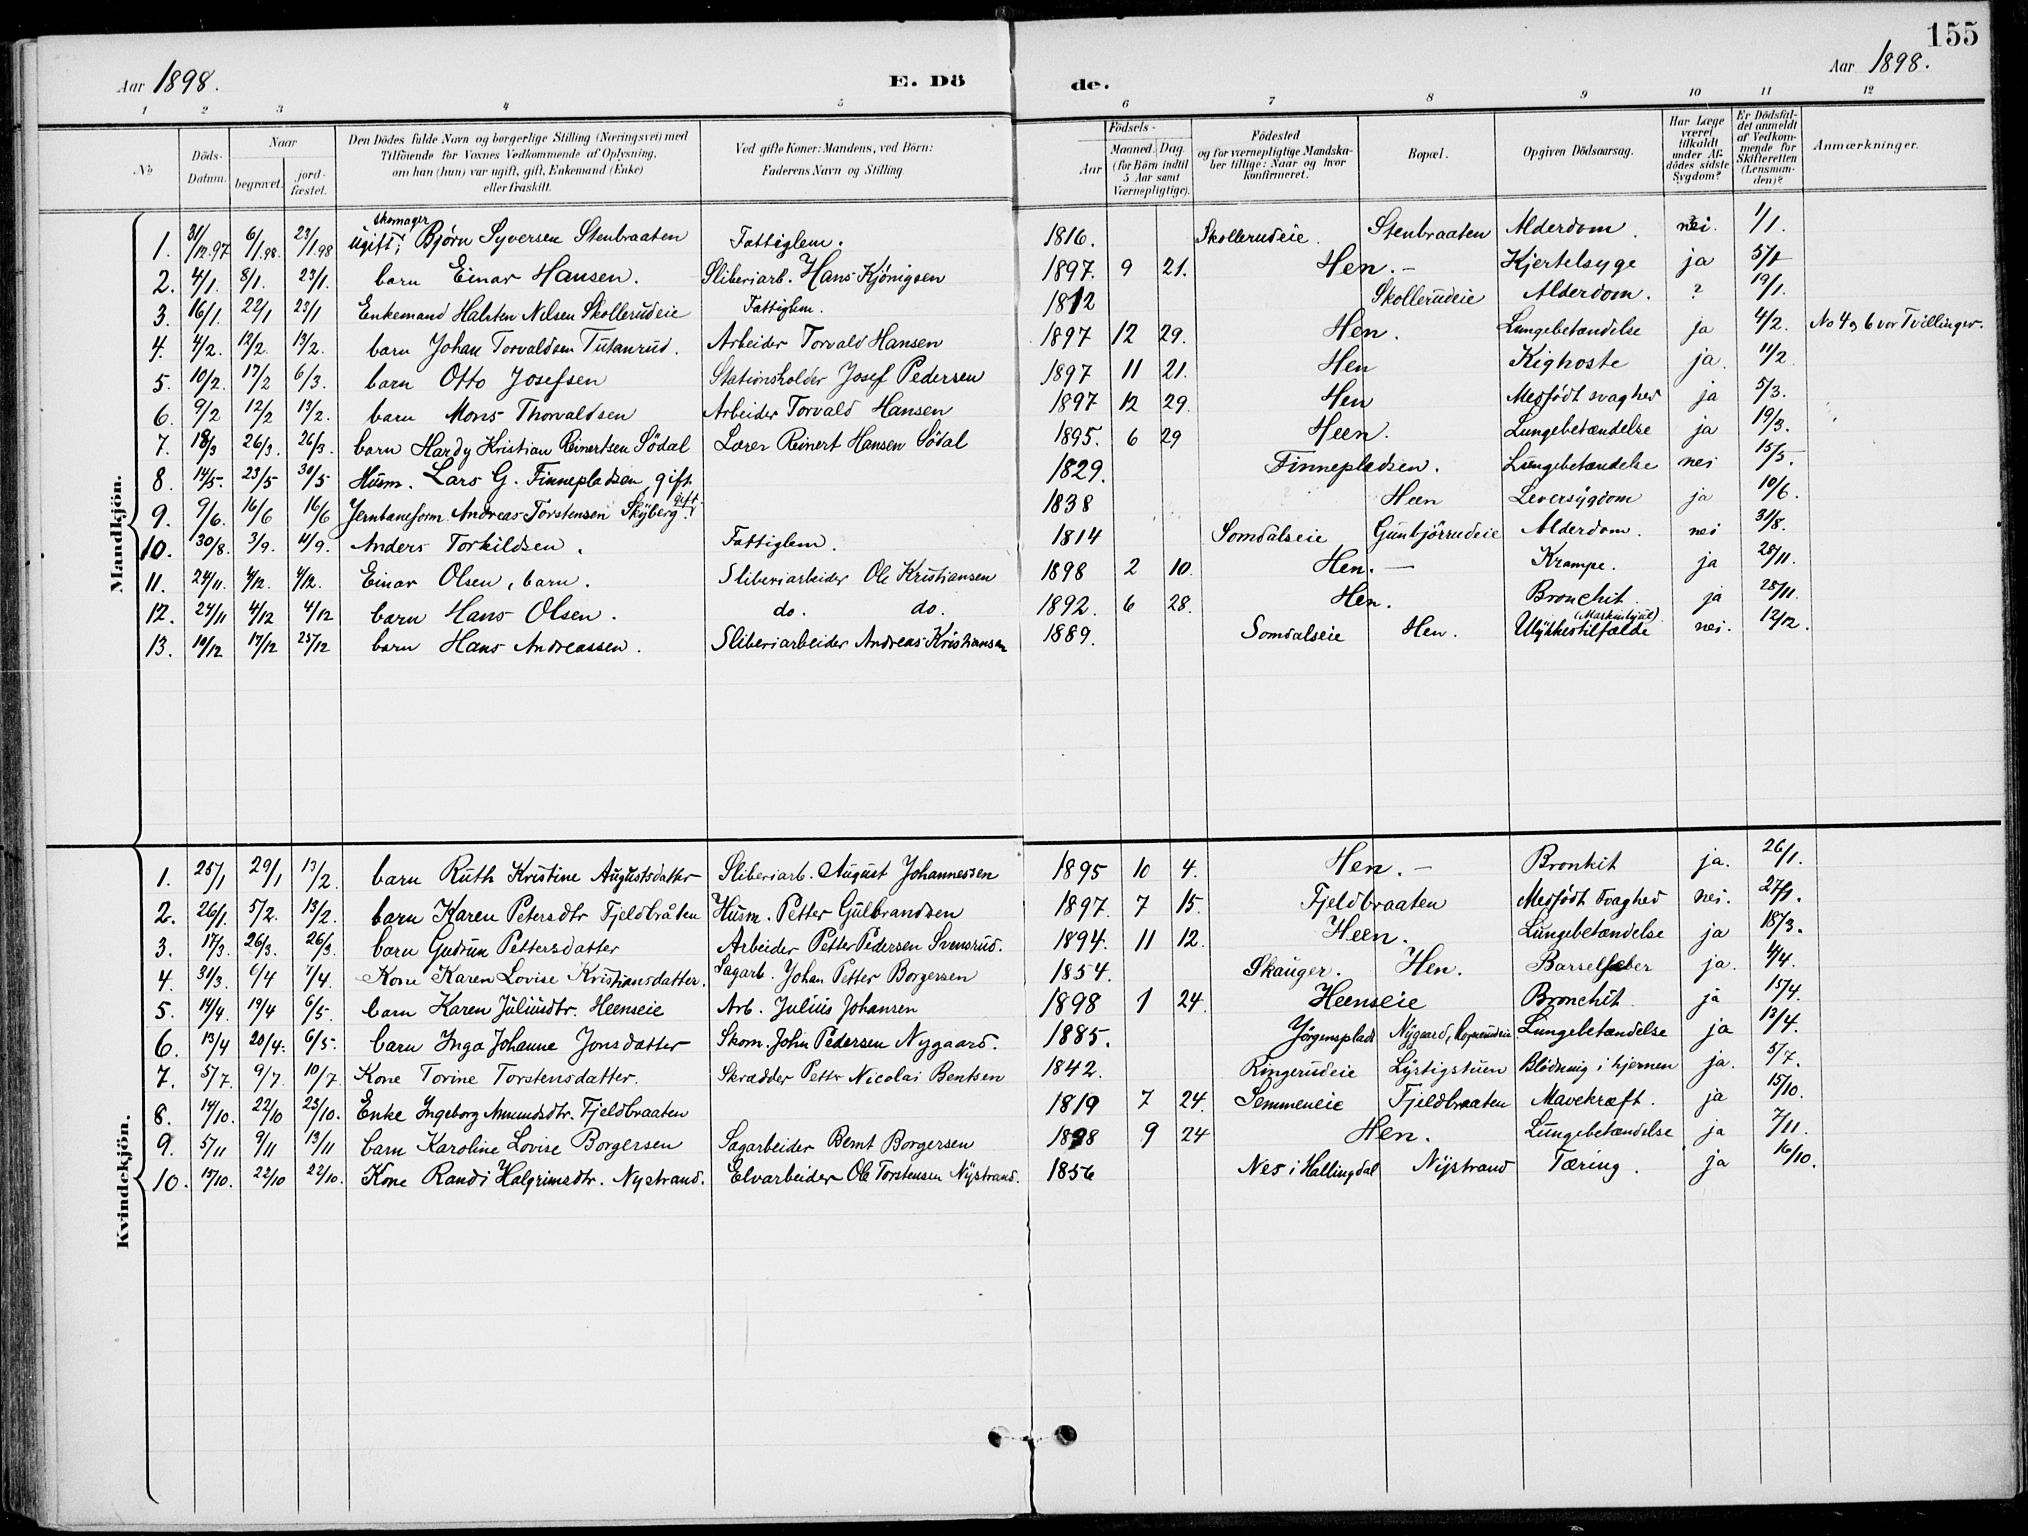 155
Aar 1898. E. Dö de. Aar 1898.
1 2 3 4 5 6 7 8 9 10 11 12
No Döds-Datum. Naar begravet. jordfæstet. Den Dödes fulde Navn og borgerlige Stilling (Næringsvei) med Tilföiende for Voxnes Vedkommende af Oplysning, om han (hun) var ugift, gift, Enkemand (Enke) eller fraskilt. Ved gifte Koner: Mandens, ved Börn: Faderens Navn og Stilling. Födsels- Aar Maaned. Dag. (for Börn indtil 5 Aar samt Værnepligtige). Födested og for værnepligtige Mandskaber tillige: Naar og hvor Konfirmeret. Bopæl. Opgiven Dödsaarsag. Har Læge været tilkaldt under Afdödes sidste Sygdom? Er Dödsfaldet anmeldt af Vedkommende for Skifteretten (Lensmanden)? Anmærkninger.
Mandkjön.
1. 31/12.97 6/1.98. 23/1.98 ugift, skomager Bjørn Syversen Stenbraaten Fattiglem. 1816. Skollerudeie. Stenbraaten Alderdom. nei. 1/1.
2. 4/1. 8/1. 23/1. barn Einar Hansen. Sliberiarb. Hans Kjönigsen 1897. 9 21. Hen. – Kjertelsyge ja 5/1
3. 16/1. 22/1 23/1 Enkemand Halsten Nilsen Skollerudeie Fattiglem. 1812 Skollerudeie Alderdom. ? 19/1.
4. 4/2. 12/2. 13/2. barn Johan Torvaldsen Tutanrud. Arbeider Torvald Hansen 1897 12 29. Hen. Lungebetændelse ja 4/2. No 4 og 6 var Tvillinger.
5. 10/2. 17/2 6/3. barn Otto Josefsen Stationsholder Josef Pedersen 1897 11 21. Hen Kighoste ja. 11/2
6. 9/2 12/2 13/2. barn Mons Thorvaldsen Arbeider Torvald Hansen 1897 12 29. Hen Medfödt svaghed ja 5/3.
7. 18/3 26/3. 26/3. barn Hardy Kristian Reinertsen Södal Lærer Reinert Hansen Södal 1895. 6 29 Heen. Lungebetændelse ja 19/3.
8. 14/5. 23/5 30/5 Husm. Lars G. Finnepladsen, gift 1829. Finnepladsen. Lungebetændelse nei 15/5.
9. 9/6. 16/6 16/6 Jernbaneform. Andreas Torstensen Skyberg gift. 1838 Heen Leversygdom ja 10/6.
10. 30/8. 3/9. 4/9. Anders Torkildsen. Fattiglem. 1814 Somdalseie Gunbjörrudeie Alderdom. nei 31/8.
11. 24/11. 4/12. 4/12. Einar Olsen, barn. Sliberiarbeider Ole Kristiansen 1898 2 10. Hen. – Krampe. ja 25/11.
12. 24/11 4/12 4/12 barn Hans Olsen. do. do. 1892. 6 28. Hen. Bronchit. ja 25/11.
13. 10/12 17/12 25/12 barn Hans Andreassen. Sliberiarbeider Andreas Kristiansen 1889. Somdalseie Hen. Ulykkestilfælde (Maskinhjul) nei. 12/12.
Kvindekjön.
1. 25/1 29/1 13/2. barn Ruth Kristine Augustsdatter Sliberiarb. August Johannessen 1895 10 4. Hen. – Bronkit ja. 26/1.
2. 26/1. 5/2. 13/2. barn Karen Petersdtr Fjeldbråten Husm. Petter Gulbrandsen 1897. 7 15. Fjeldbraaten Medfödt Svaghed nei. 27/1.
3. 17/3. 26/3. 26/3. barn Gudrun Pettersdatter Arbeider Petter Pedersen Svensrud. 1894. 11 12. Heen. Lungebetændelse ja 18/3.
4. 31/3. 6/4 7/4. Kone Karen Lovise Kristiansdatter. Sagarb. Johan Petter Borgersen 1854. Skauger. Hen. Barselfeber ja. 4/4.
5. 14/4. 19/4 6/5. barn Karen Juliusdtr. Heenseie Arb. Julius Johansen 1898 1 24. Heenseie Bronchit ja 15/4.
6. 13/4 20/4. 6/5. barn Inga Johanne Jonsdatter Skom. John Pedersen Nygaard. 1885. Jörgensplads Nygaard, Lungebetændelse ja 13/4.
7. 5/7. 9/7. 10/7. Kone Torine Torstensdatter. Skrædder Petter Nicolai Bentsen 1842. Ringerudeie Lystigstuen Blödning i hjernen ja. 5/7.
8. 14/10. 22/10 23/10. Enke Ingeborg Amundsdtr. Fjeldbraaten 1819 7 24. Semmeneie Fjeldbraaten Mavekræft. ja 15/10.
9. 5/11 9/11 13/11 barn Karoline Lovise Borgersen Sagarbeider Bernt Borgersen 1898 9 24 Hen. Lungebetændelse ja 7/11.
10. 15/10. 22/10 22/10. Kone Randi Halgrimsdtr. Nystrand. Elvarbeider Ole Torstensen Nystrand. 1856 Nes i Hallingdal Nystrand Tæring. ja 16/10.